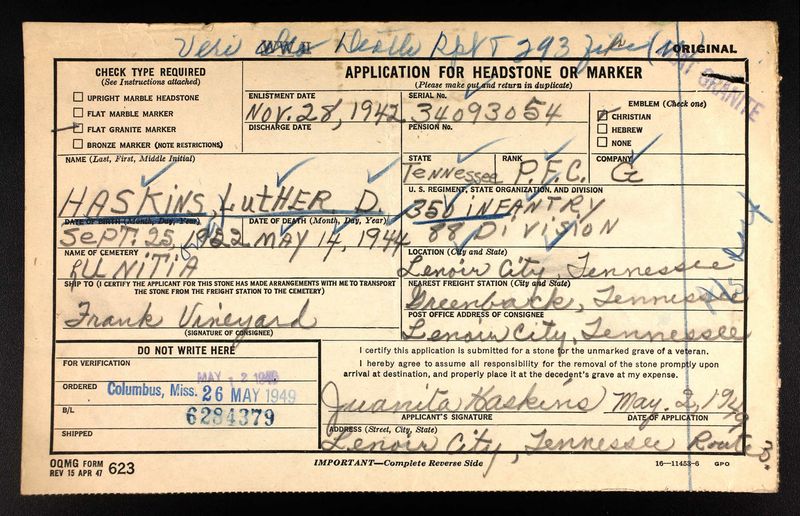 Veri Death Rpt 293 file
ORIGINAL
CHECK TYPE REQUIRED
(See Instructions attached)
UPRIGHT MARBLE HEADSTONE
FLAT MARBLE MARKER
FLAT GRANITE MARKER
BRONZE MARKER (NOTE RESTRICTIONS)
APPLICATION FOR HEADSTONE OR MARKER
(Please make out and return in duplicate)
ENLISTMENT DATE
Nov. 28, 1942
DISCHARGE DATE
SERIAL No.
34093054
PENSION No.
EMBLEM (Check one)
CHRISTIAN
HEBREW
NONE
GRANITE
NAME (Last, First, Middle Initial)
HASKINS, LUTHER D.
STATE
Tennessee
RANK
P.F.C.
COMPANY
G
U. S. REGIMENT, STATE ORGANIZATION, AND DIVISION
350 INFANTRY
88 DIVISION
DATE OF BIRTH (Month, Day, Year)
Sept. 25, 1922
DATE OF DEATH (Month, Day, Year)
MAY 14, 1944
NAME OF CEMETERY
PUNITIA
LOCATION (City and State)
Lenoir City, Tennessee
SHIP TO (I CERTIFY THE APPLICANT FOR THIS STONE HAS MADE ARRANGEMENTS WITH ME TO TRANSPORT
THE STONE FROM THE FREIGHT STATION TO THE CEMETERY)
Frank Vineyard
(SIGNATURE OF CONSIGNEE)
NEAREST FREIGHT STATION (City and State)
Greenback, Tennessee
POST OFFICE ADDRESS OF CONSIGNEE
Lenoir City, Tennessee
DO NOT WRITE HERE
FOR VERIFICATION
MAY 12 1949
ORDERED
Columbus, Miss. 26 MAY 1949
B/L
6284379
SHIPPED
I certify this application is submitted for a stone for the unmarked grave of a veteran.
I hereby agree to assume all responsibility for the removal of the stone promptly upon
arrival at destination, and properly place it at the decedent's grave at my expense.
Juanita Haskins May. 2, 1949
APPLICANT'S SIGNATURE
DATE OF APPLICATION
ADDRESS (Street, City, State)
Lenoir City, Tennessee Route 3.
OQMG FORM
REV 15 APR 47 623
IMPORTANT—Complete Reverse Side
16—11453-6 GPO